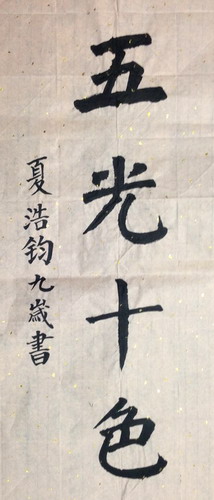 五光十色
夏浩鈞九歲書